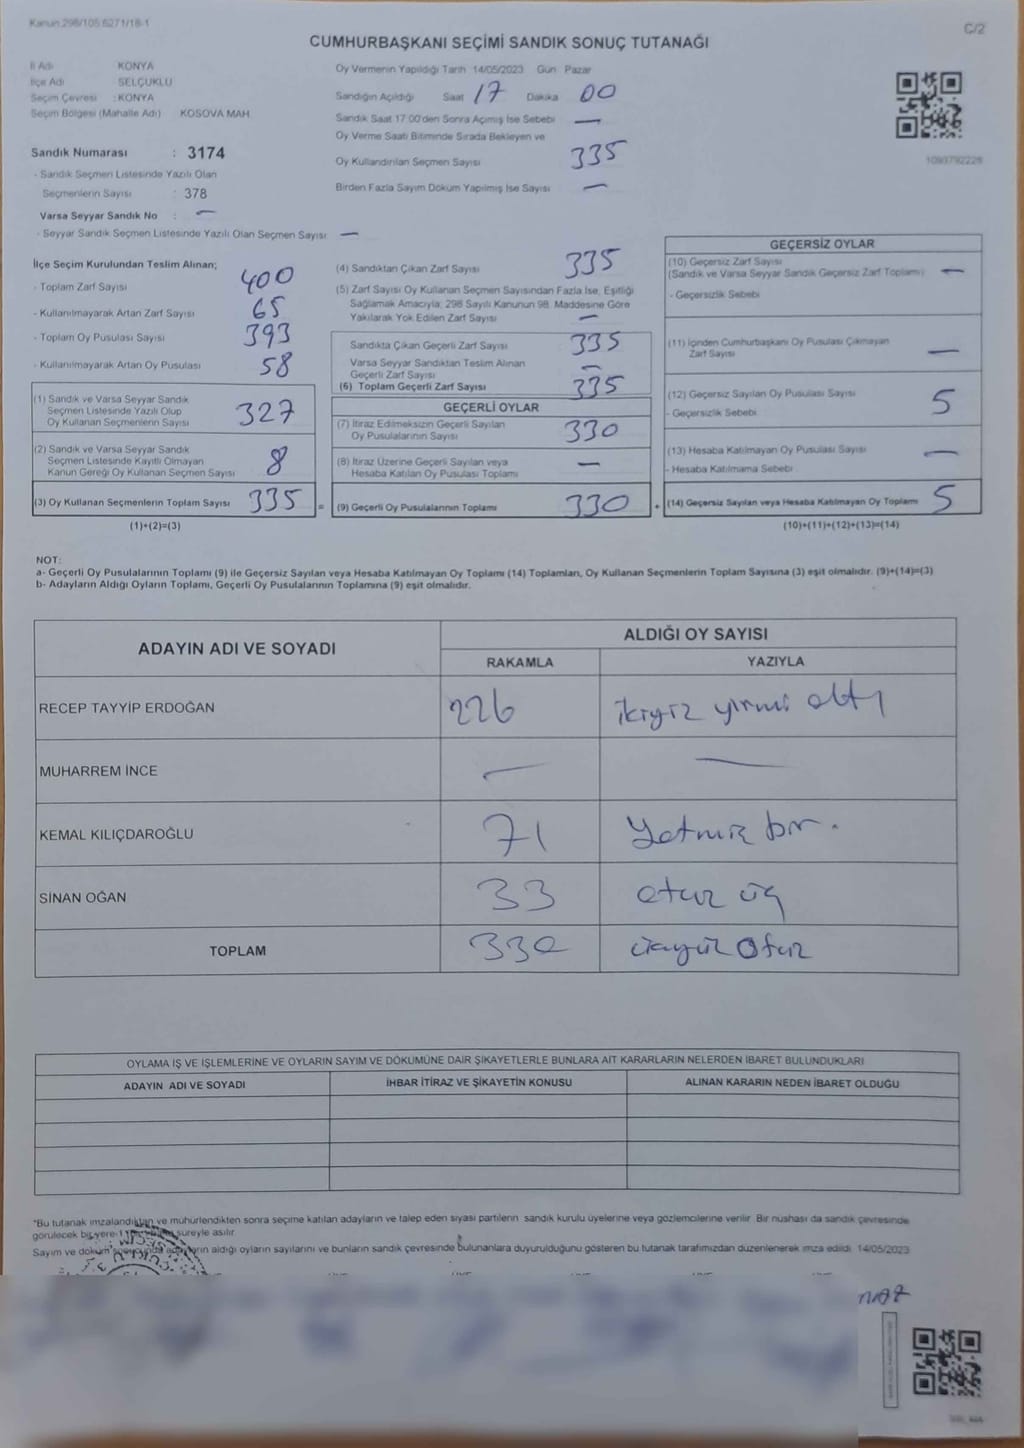 Kanun 298/105 6271/18-1
C/2
CUMHURBAŞKANI SEÇİMİ SANDIK SONUÇ TUTANAĞI
İl Adı KONYA
İlçe Adı SELÇUKLU
Seçim Çevresi : KONYA
Seçim Bölgesi (Mahalle Adı) KOSOVA MAH.
Sandık Numarası : 3174
- Sandık Seçmen Listesinde Yazılı Olan
Seçmenlerin Sayısı : 378
Varsa Seyyar Sandık No : —
- Seyyar Sandık Seçmen Listesinde Yazılı Olan Seçmen Sayısı —
Oy Vermenin Yapıldığı Tarih 14/05/2023 Gün Pazar
Sandığın Açıldığı Saat 17 Dakika 00
Sandık Saat 17.00'den Sonra Açımış İse Sebebi —
Oy Verme Saati Bitiminde Sırada Bekleyen ve
Oy Kullandırılan Seçmen Sayısı 335
Birden Fazla Sayım Döküm Yapılmış İse Sayısı —
1093792226
İlçe Seçim Kurulundan Teslim Alınan;
- Toplam Zarf Sayısı 400
- Kullanılmayarak Artan Zarf Sayısı 65
- Toplam Oy Pusulası Sayısı 393
- Kullanılmayarak Artan Oy Pusulası 58
(1) Sandık ve Varsa Seyyar Sandık
Seçmen Listesinde Yazılı Olup
Oy Kullanan Seçmenlerin Sayısı 327
(2) Sandık ve Varsa Seyyar Sandık
Seçmen Listesinde Kayıtlı Olmayan
Kanun Gereği Oy Kullanan Seçmen Sayısı 8
(3) Oy Kullanan Seçmenlerin Toplam Sayısı 335
(1)+(2)=(3)
(4) Sandıktan Çıkan Zarf Sayısı 335
(5) Zarf Sayısı Oy Kullanan Seçmen Sayısından Fazla İse, Eşitliği
Sağlamak Amacıyla, 298 Sayılı Kanunun 98. Maddesine Göre
Yakılarak Yok Edilen Zarf Sayısı —
Sandıkta Çıkan Geçerli Zarf Sayısı 335
Varsa Seyyar Sandıktan Teslim Alınan
Geçerli Zarf Sayısı —
(6) Toplam Geçerli Zarf Sayısı 335
GEÇERLİ OYLAR
(7) İtiraz Edilmeksizin Geçerli Sayılan
Oy Pusulalarının Sayısı 330
(8) İtiraz Üzerine Geçerli Sayılan veya
Hesaba Katılan Oy Pusulası Toplamı —
= (9) Geçerli Oy Pusulalarının Toplamı 330
GEÇERSİZ OYLAR
(10) Geçersiz Zarf Sayısı
(Sandık ve Varsa Seyyar Sandık Geçersiz Zarf Toplamı) —
- Geçersizlik Sebebi
(11) İçinden Cumhurbaşkanı Oy Pusulası Çıkmayan
Zarf Sayısı —
(12) Geçersiz Sayılan Oy Pusulası Sayısı 5
- Geçersizlik Sebebi
(13) Hesaba Katılmayan Oy Pusulası Sayısı —
- Hesaba Katılmama Sebebi
+ (14) Geçersiz Sayılan veya Hesaba Katılmayan Oy Toplamı 5
(10)+(11)+(12)+(13)=(14)
NOT:
a- Geçerli Oy Pusulalarının Toplamı (9) ile Geçersiz Sayılan veya Hesaba Katılmayan Oy Toplamı (14) Toplamları, Oy Kullanan Seçmenlerin Toplam Sayısına (3) eşit olmalıdır. (9)+(14)=(3)
b- Adayların Aldığı Oyların Toplamı, Geçerli Oy Pusulalarının Toplamına (9) eşit olmalıdır.
ADAYIN ADI VE SOYADI ALDIĞI OY SAYISI
RAKAMLA YAZIYLA
RECEP TAYYİP ERDOĞAN 226 ikiyüz yirmi altı
MUHARREM İNCE — —
KEMAL KILIÇDAROĞLU 71 Yetmiş bir.
SİNAN OĞAN 33 otuz üç
TOPLAM 330 üçyüz Otuz
OYLAMA İŞ VE İŞLEMLERİNE VE OYLARIN SAYIM VE DÖKÜMÜNE DAİR ŞİKAYETLERLE BUNLARA AİT KARARLARIN NELERDEN İBARET BULUNDUKLARI
ADAYIN ADI VE SOYADI İHBAR İTİRAZ VE ŞİKAYETİN KONUSU ALINAN KARARIN NEDEN İBARET OLDUĞU
*Bu tutanak imzalandıktan ve mühürlendikten sonra seçime katılan adayların ve talep eden siyasi partilerin sandık kurulu üyelerine veya gözlemcilerine verilir. Bir nüshası da sandık çevresinde
görülecek bir yere süreyle asılır.
Sayım ve döküm sonucunda adayların aldığı oyların sayılarını ve bunların sandık çevresinde bulunanlara duyurulduğunu gösteren bu tutanak tarafımızdan düzenlenerek imza edildi. 14/05/2023